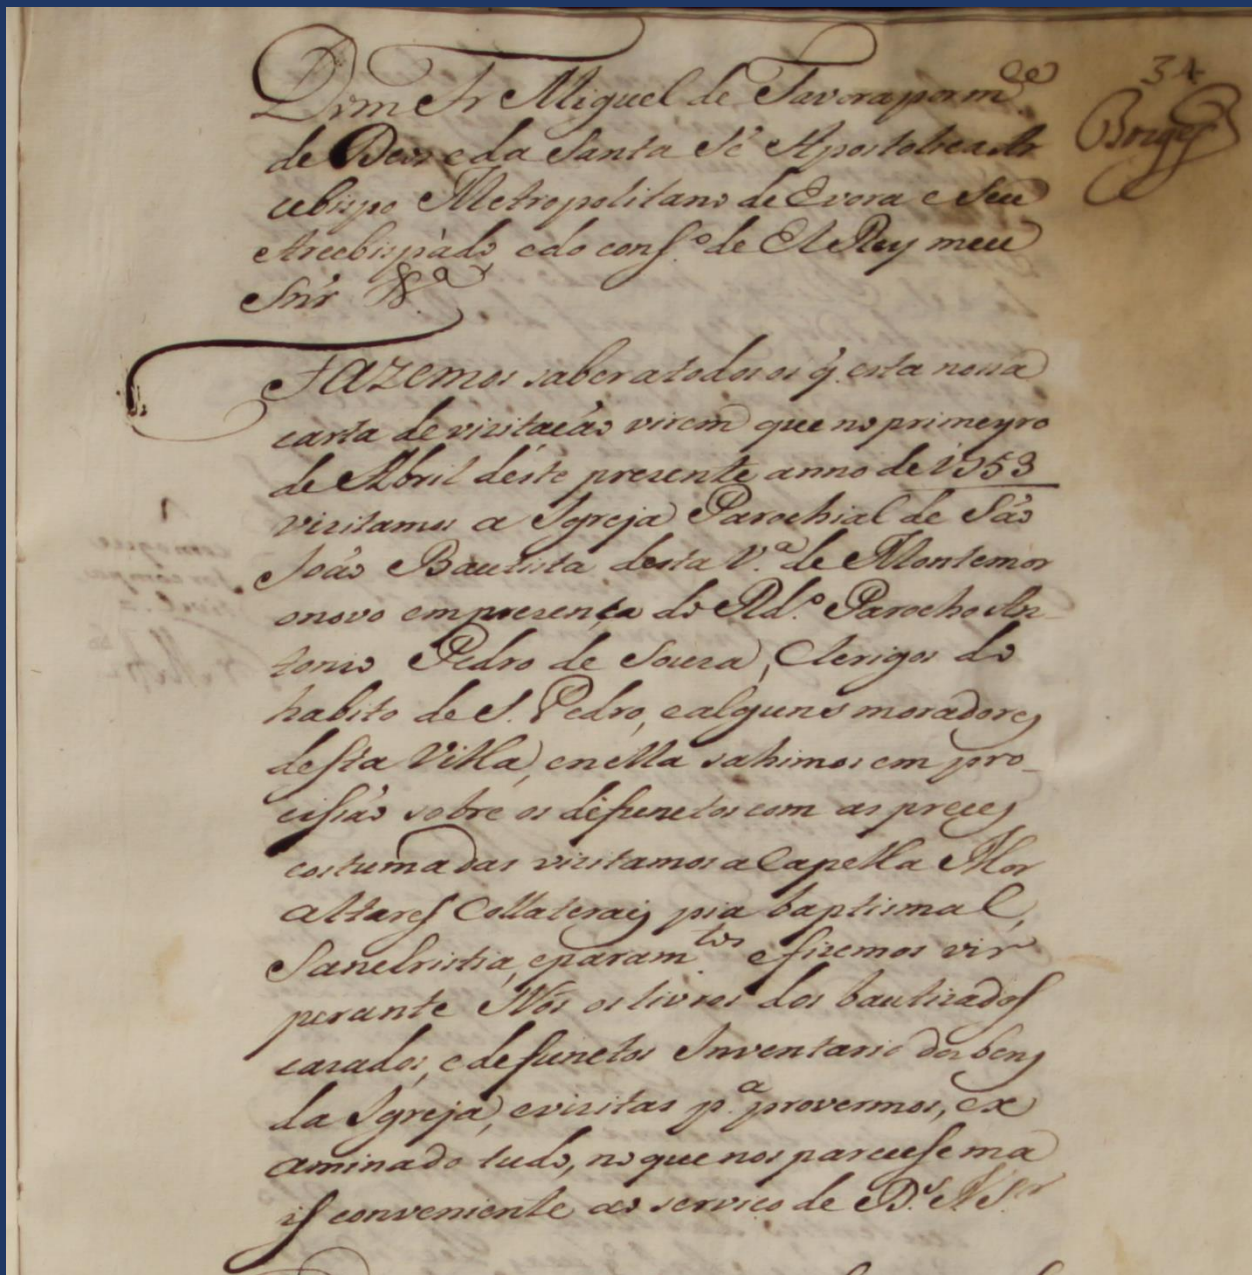 34
Borges
Dom Fr Miguel de Tavora por m.ce
de Deos e da Santa Sé Apostolica Ar
cebispo Metropolitano de Evora e Seu
Arcebispado e do cons.º de El Rey meu
Snr̃ &.ª
Fazemos saber a todos os q̃ esta nossa
carta de vizitacão virem que no primeyro
de Abril déste presente anno de 1753
vizitamos a Igreja Parochial de São
João Bautista desta V.ª de Montemor
o novo em prezença do Rd.º Parocho An
tonio Pedro de Souza, Clerigos do
habito de S. Pedro, e alguns moradores
desta Villa, e nella sahimos em pro-
cissão sobre os defunctos com as preces
costumadas vizitamos a Capella Mor
altares Collaterais pia baptismal,
Sanchristia, e param.tos e fizemos vir
perante Nós os livros dos bautizados
cazados, e defunctos Inventario dos bens
da Igreja, e vizitas p.ª provermos, ex
aminado tudo, no que nos parecesse ma
is conveniente ao serviço de D.s N S.or